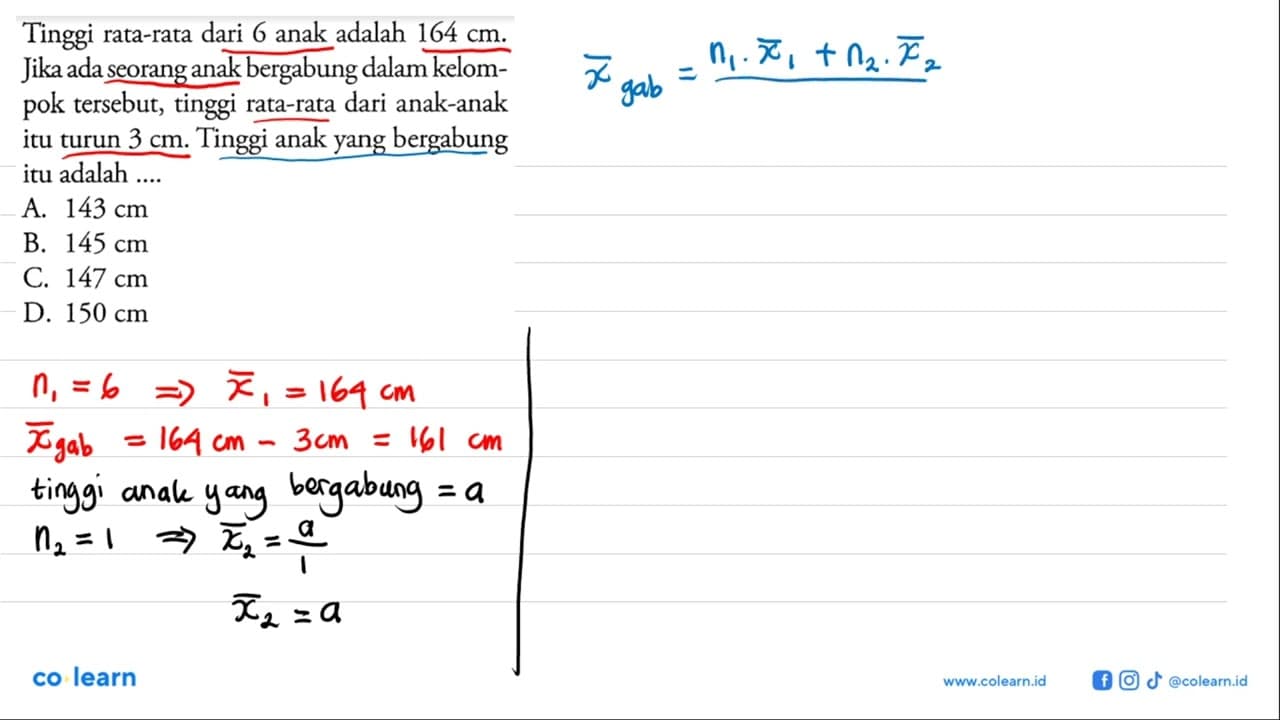 Tinggi rata-rata dari 6 anak adalah 164 cm.
Jika ada seorang anak bergabung dalam kelom-
pok tersebut, tinggi rata-rata dari anak-anak
itu turun 3 cm. Tinggi anak yang bergabung
itu adalah ....
A. 143 cm
B. 145 cm
C. 147 cm
D. 150 cm
n₁ = 6 ⇒ x̅₁ = 164 cm
x̅ gab = 164 cm - 3cm = 161 cm
tinggi anak yang bergabung = a
n₂ = 1 ⇒ x̅₂ = a/1
x̅₂ = a
x̅ gab = n₁. x̅₁ + n₂. x̅₂
co learn
www.colearn.id
@colearn.id